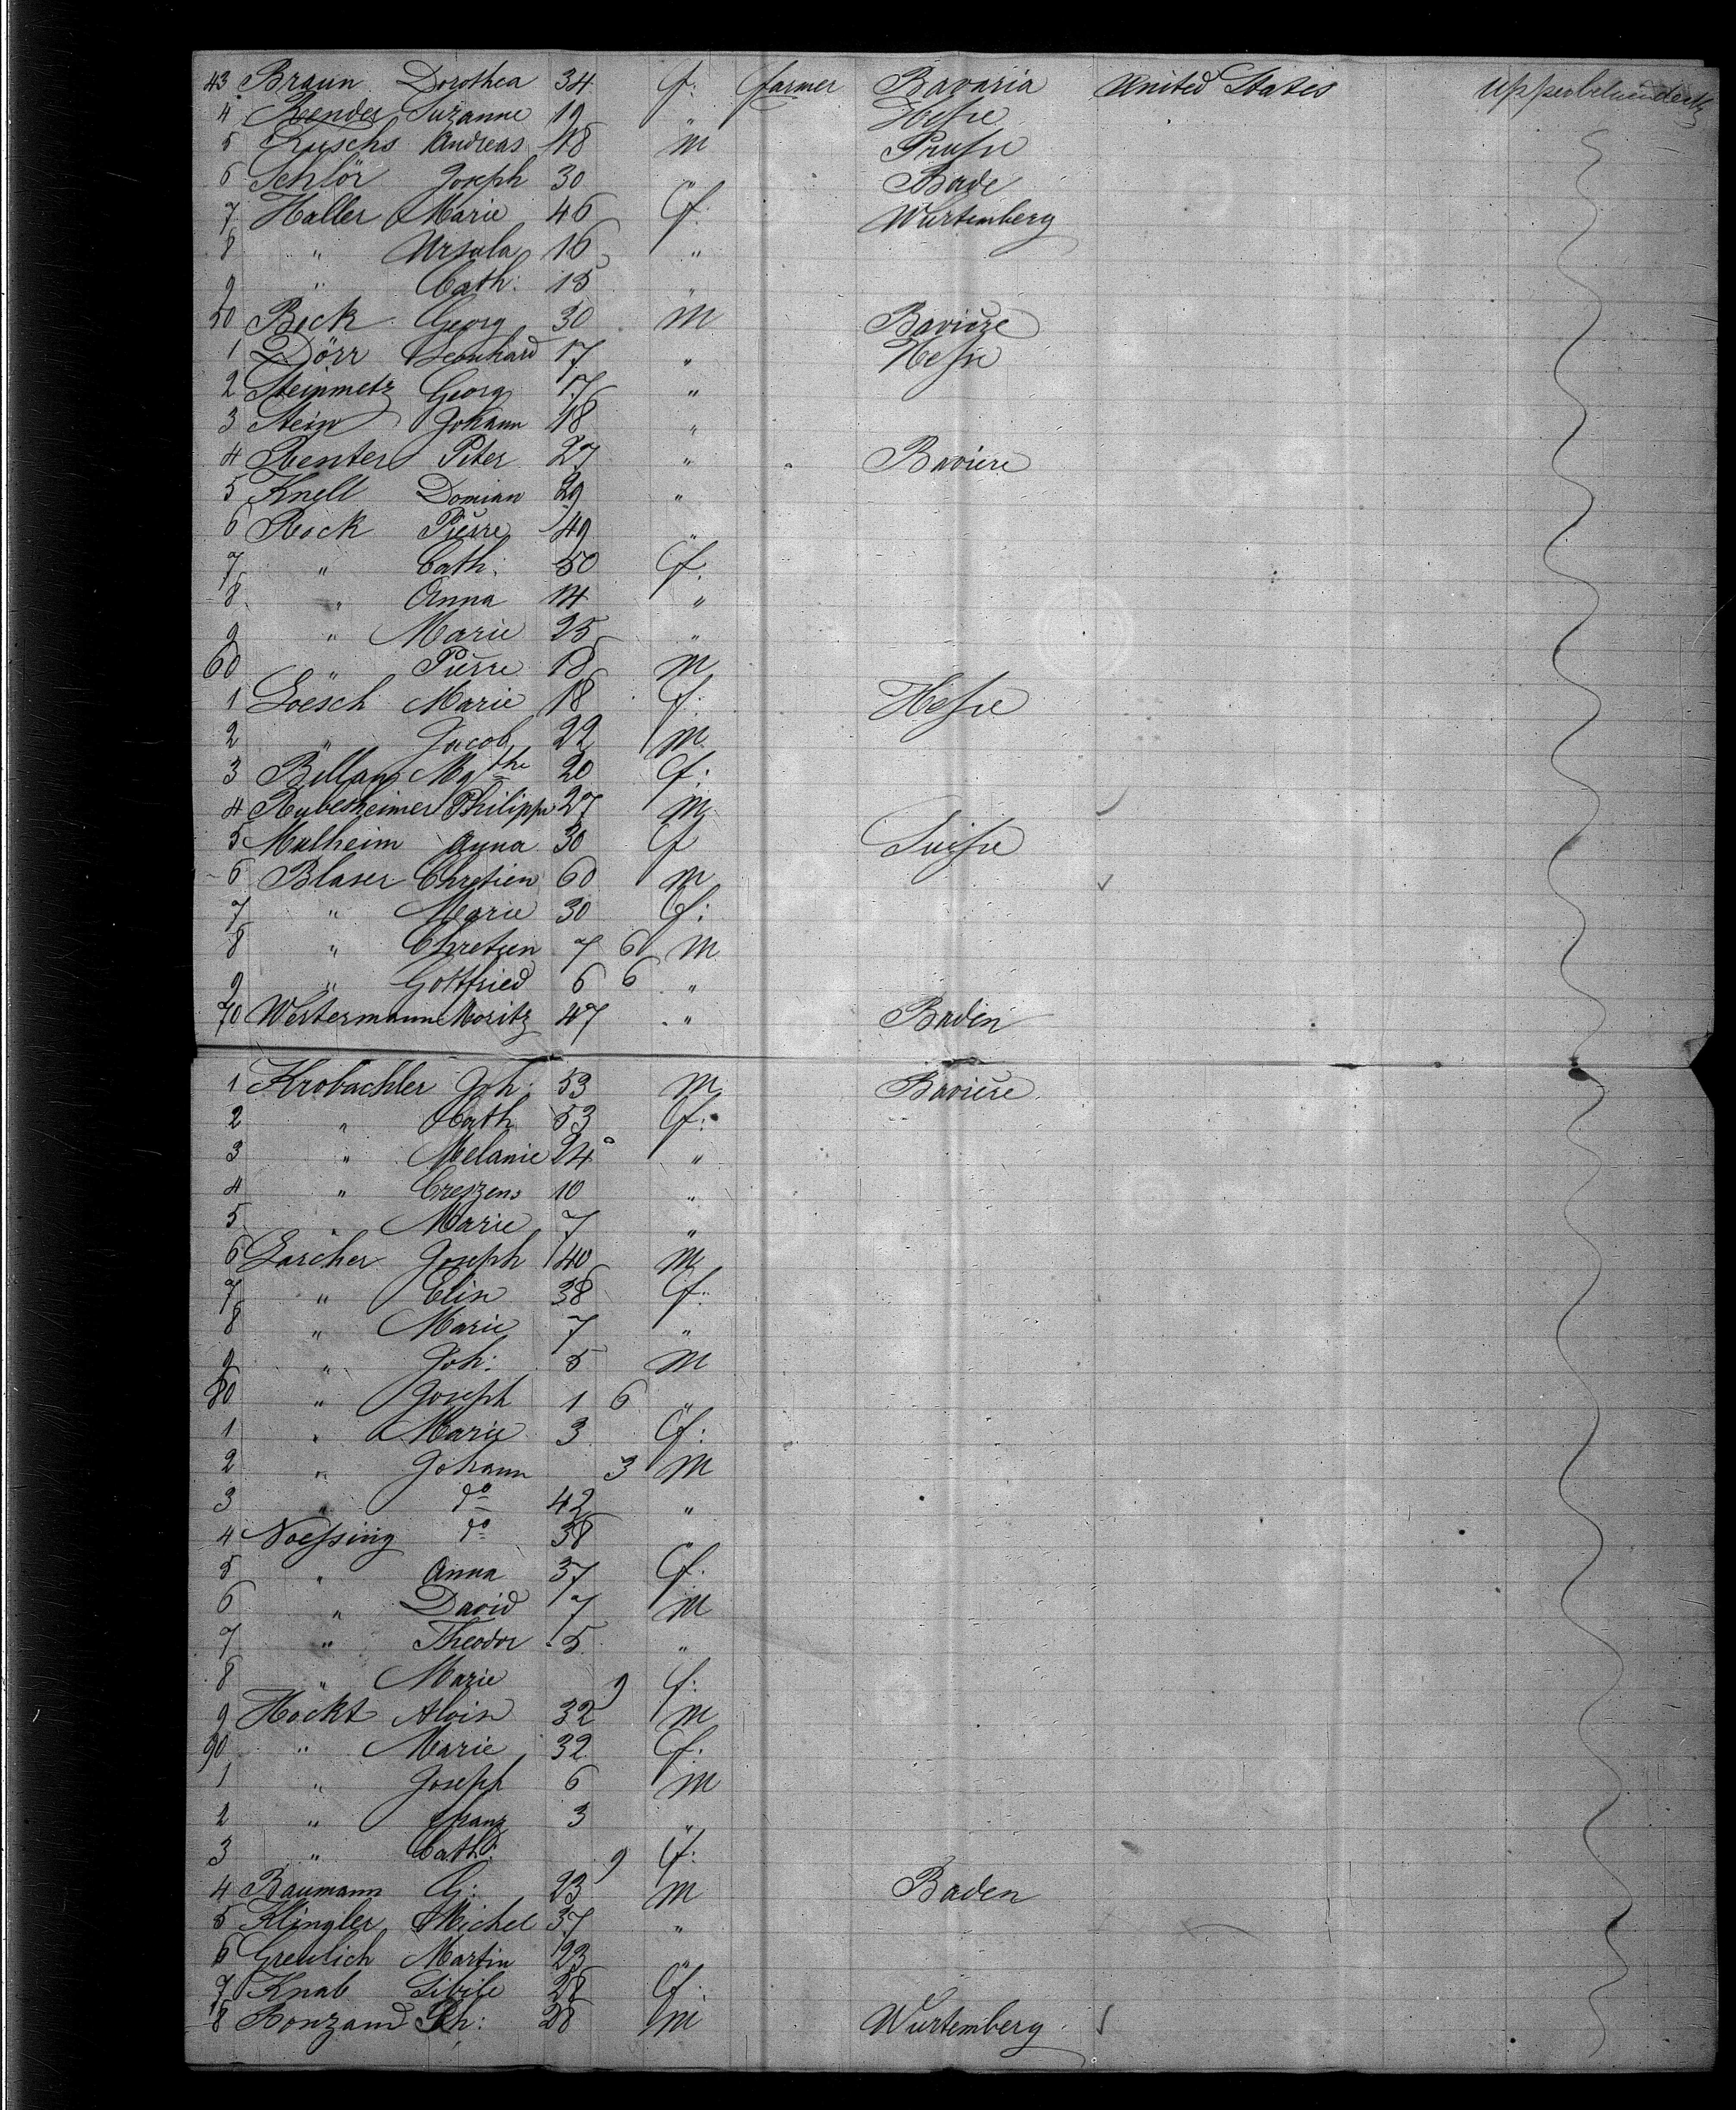 43 Braun Dorothea 34 f: farmer Bavaria United States
4 Render Suzanne 19 " Hesse
5 Kuschs Andreas 18 m Prusse
6 Schlör Joseph 30 " Bade
7 Haller Marie 46 f: Wurtemberg
8 " Ursula 16 "
9 " Cath: 15 "
50 Beck Georg 30 m Baviere
1 Dörr Leonhard 17 " Hesse
2 Steinmetz Georg 17 "
3 Stein Johann 18 "
4 Renter Peter 27 " Baviere
5 Knell Domian 29 "
6 Rock Pierre 49 "
7 " Cath: 50 f:
8 " Anna 14 "
9 " Marie 25 "
60 " Pierre 18 m
1 Loesch Marie 18 f: Hesse
2 " Jacob 22 m
3 Bellang Mgthe 20 f:
4 Rubesheimer Philippe 27 m
5 Malheim Anna 30 f Suisse
6 Blaser Chretien 60 m
7 " Marie 30 f:
8 " Chretien 7 6 m
9 " Gottfried 6 6 "
70 Westermann Moritz 47 " Baden
1 Krobachler Joh: 53 m Baviere
2 " Cath 53 f:
3 " Melanie 24 "
4 " Creszens 10 "
5 " Marie 7 "
6 Larcher Joseph 40 m
7 " Elin 38 f:
8 " Marie 7 "
9 " Joh: 5 m
80 " Joseph 1 6 "
1 " Marie 3 f:
2 " Johann 3 m
3 " do 42 "
4 Noessing do 38 "
5 " Anna 37 f:
6 " David 7 m
7 " Theodor 5 "
8 " Marie 9 f:
9 Hockt Alois 32 m
90 " Marie 32 f:
1 " Joseph 6 m
2 " Franz 3 "
3 " Cath: 9 f:
4 Baumann G: 23 m Baden
5 Klingler Michel 37 "
6 Greulich Martin 23 "
7 Knab Sibile 28 f:
8 Ronzand Ph: 28 m Wurtemberg